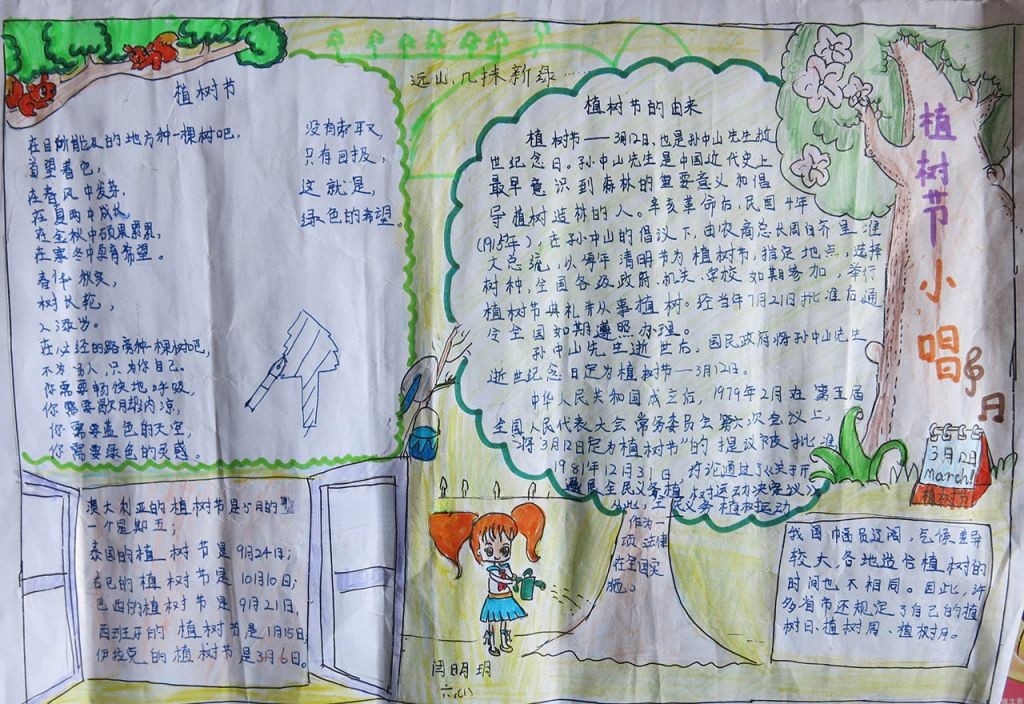 植树节
在目所能及的地方种一棵树吧,
首望着它,
在春风中发芽,
在夏雨中成长,
在金秋中硕果累累,
在寒冬中孕育希望。
春华秋实,
树长花,
人添岁。
在必经的路旁种一棵树吧,
不为了别人,只为你自己。
你需要畅快地呼吸,
你需要歇月换内凉,
你需要蓝色的天空,
你需要绿色的灵感。
没有索取,
只有回报,
这就是,
绿色的希望。
远山,几抹新绿……
植树节的由来
植树节——3月12日,也是孙中山先生逝
世纪念日。孙中山先生是中国近代史上
最早意识到森林的重要意义和倡
导植树造林的人。辛亥革命后,民国4年
(1915年),在孙中山的倡议下,由农商总长周自齐呈准
大总统,以每年清明节为植树节,指定地点,选择
树种,全国各级政府,机关,学校如期参加,举行
植树节典礼并从事植树。经当年7月21日批准后通
令全国如期遵照办理。
孙中山先生逝世后,国民政府将孙中山先生
逝世纪念日定为植树节——3月12日。
中华人民共和国成立后,1979年2月在第五届
全国人民代表大会常务委员会第六次会议上,
“将3月12日定为植树节”的提议被批准
1981年12月31日讨论通过了《关于开
展全民义务植树运动决议》
从此,全民义务植树运动
作为一
项法律
在全国实
施。
植树节小唱
3月12日
march!
植树节
澳大利亚的植树节是5月的
一个星期五;
泰国的植树节是9月24日;
古巴的植树节是10月10日;
巴西的植树节是9月21日,
西班牙的植树节是1月15日,
伊拉克的植树节是3月6日。
闫明玥
六.(1)
我国幅员辽阔,气候差异
较大,各地适合植树的
时间也不相同。因此,许
多省市还规定了自己的植
树日、植树周、植树月。